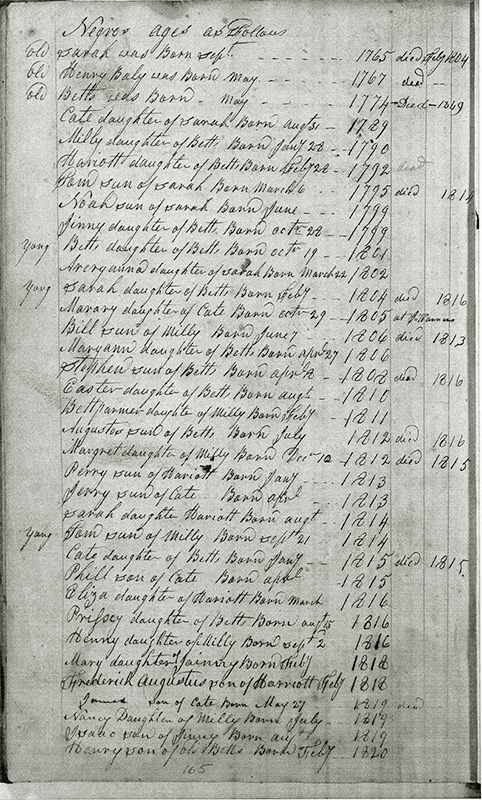 Negroes ages as Follows
old Sarah was Born Sept. 1765 died Feby 1804
old Henry Baly was Born May 1767 died
old Betts was Born May 1774 Died 1869
Cate daughter of Sarah Born augt 1789
Milly daughter of Betts Born Jany 28 1790
Hariott daughter of Betts Born Feby 28 1792 died
Tom Sun of Sarah Born March 6 1795 died 1814
Noah Sun of Sarah Born June 1799
Jinny daughter of Betts Born octr 28 1799
yong Betts daughter of Betts Born octr 19 1801
daughter of Sarah Born March 22 1802
yong Sarah daughter of Betts Born Feby 1804 died 1816
daughter of Cate Born octr 29 1805 at
Bill Sun of Milly Born June 7 1806 died 1813
Maryann daughter of Betts Born aprl 27 1806
Stephen Sun of Betts Born aprl 8 1808 died 1816
Easter daughter of Betts Born augt 1810
daughter of Milly Born Feby 1811
Augustos Sun of Betts Born July 1812 died 1816
Margret daughter of Milly Born Decr 12 1812 died 1815
Perry Son of Hariott Born Jany 1813
Jerry Son of Cate Born aprl 1813
Sarah daughter Hariott Born augt 1814
yong Tom Sun of Milly Born Sept 21 1814
Cate daughter of Betts Born Jany 1815 died 1815
Phill Son of Cate Born aprl 1815
Eliza daughter of Hariott Born March 1816
Prissey daughter of Betts Born augt 15 1816
Henny daughter of Milly Born Sept 2 1816
Mary daughter of Jinny Born Feby 1818
Frederick Augustus Son of Harriott Feby 1818
James son of Cate Born May 27 1819 died
Nancy Daughter of Milly Born July 1819
Isaac Son of Jinny Born augt 1819
Henry Son of old Betts Born Feby 1820
165